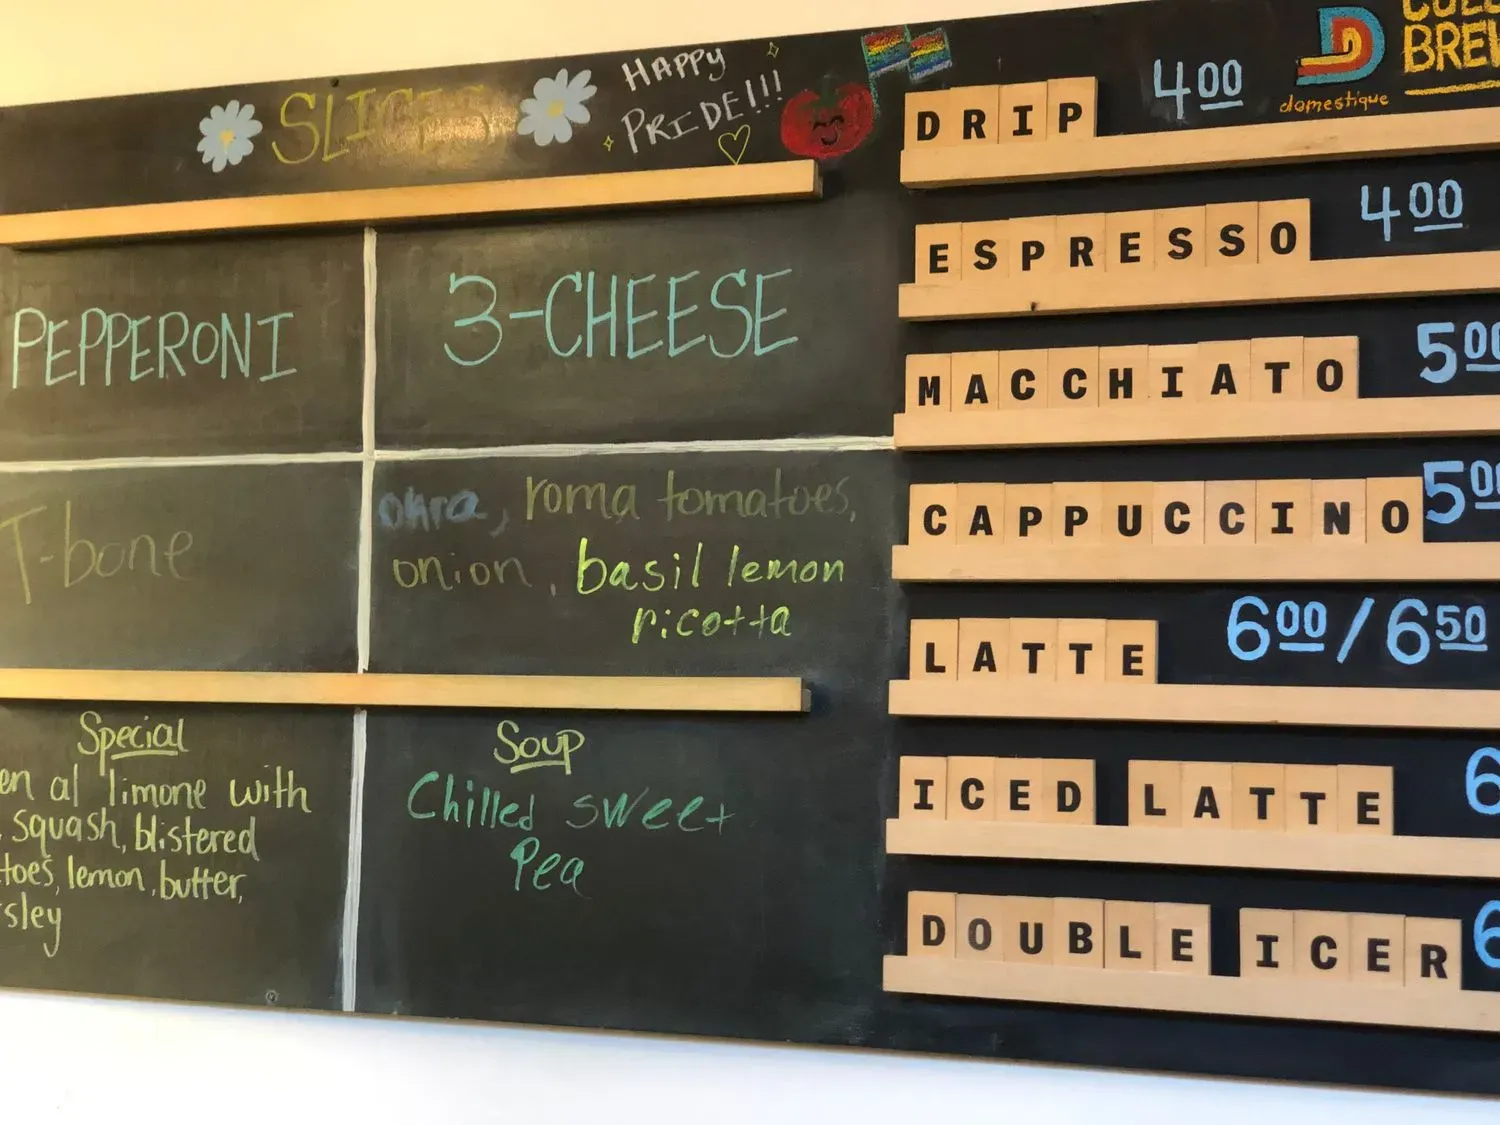 SLICES
HAPPY
PRIDE!!!
PEPPERONI
3-CHEESE
T-bone
okra, roma tomatoes,
onion, basil lemon
ricotta
Special
en al limone with
, squash, blistered
toes, lemon, butter,
sley
Soup
Chilled sweet
Pea
domestique
BREW
DRIP 4.00
ESPRESSO 4.00
MACCHIATO 5.00
CAPPUCCINO 5.00
LATTE 6.00/6.50
ICED LATTE 6
DOUBLE ICER 6